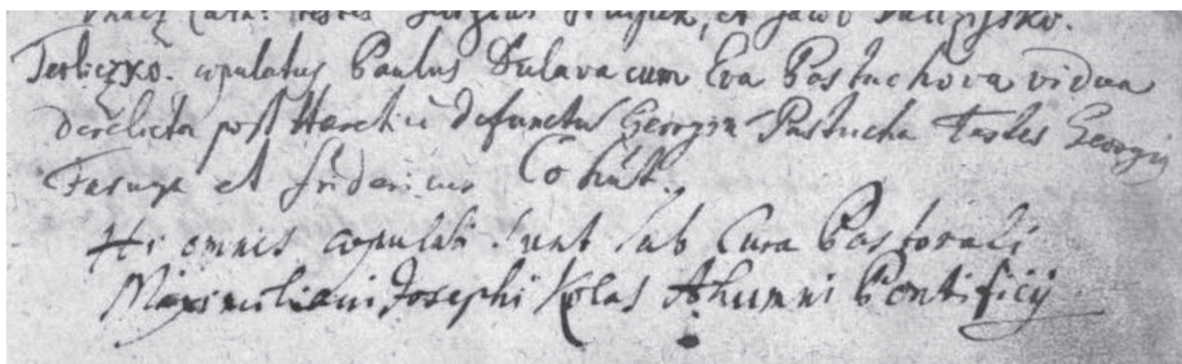 Cath: testes Georgius et Jacob
Terliczko. copulatus Paulus Sulava cum Eva Pastuchova vidua
derelicta post Haeretice defunctu Georgiu Pastucha testes Georgig
Faruga et fridericus Cohut.
Hi omnes copulati sunt sub Cura Pastorali
Maximiliani Josephi Kolas Alumni Pontificij